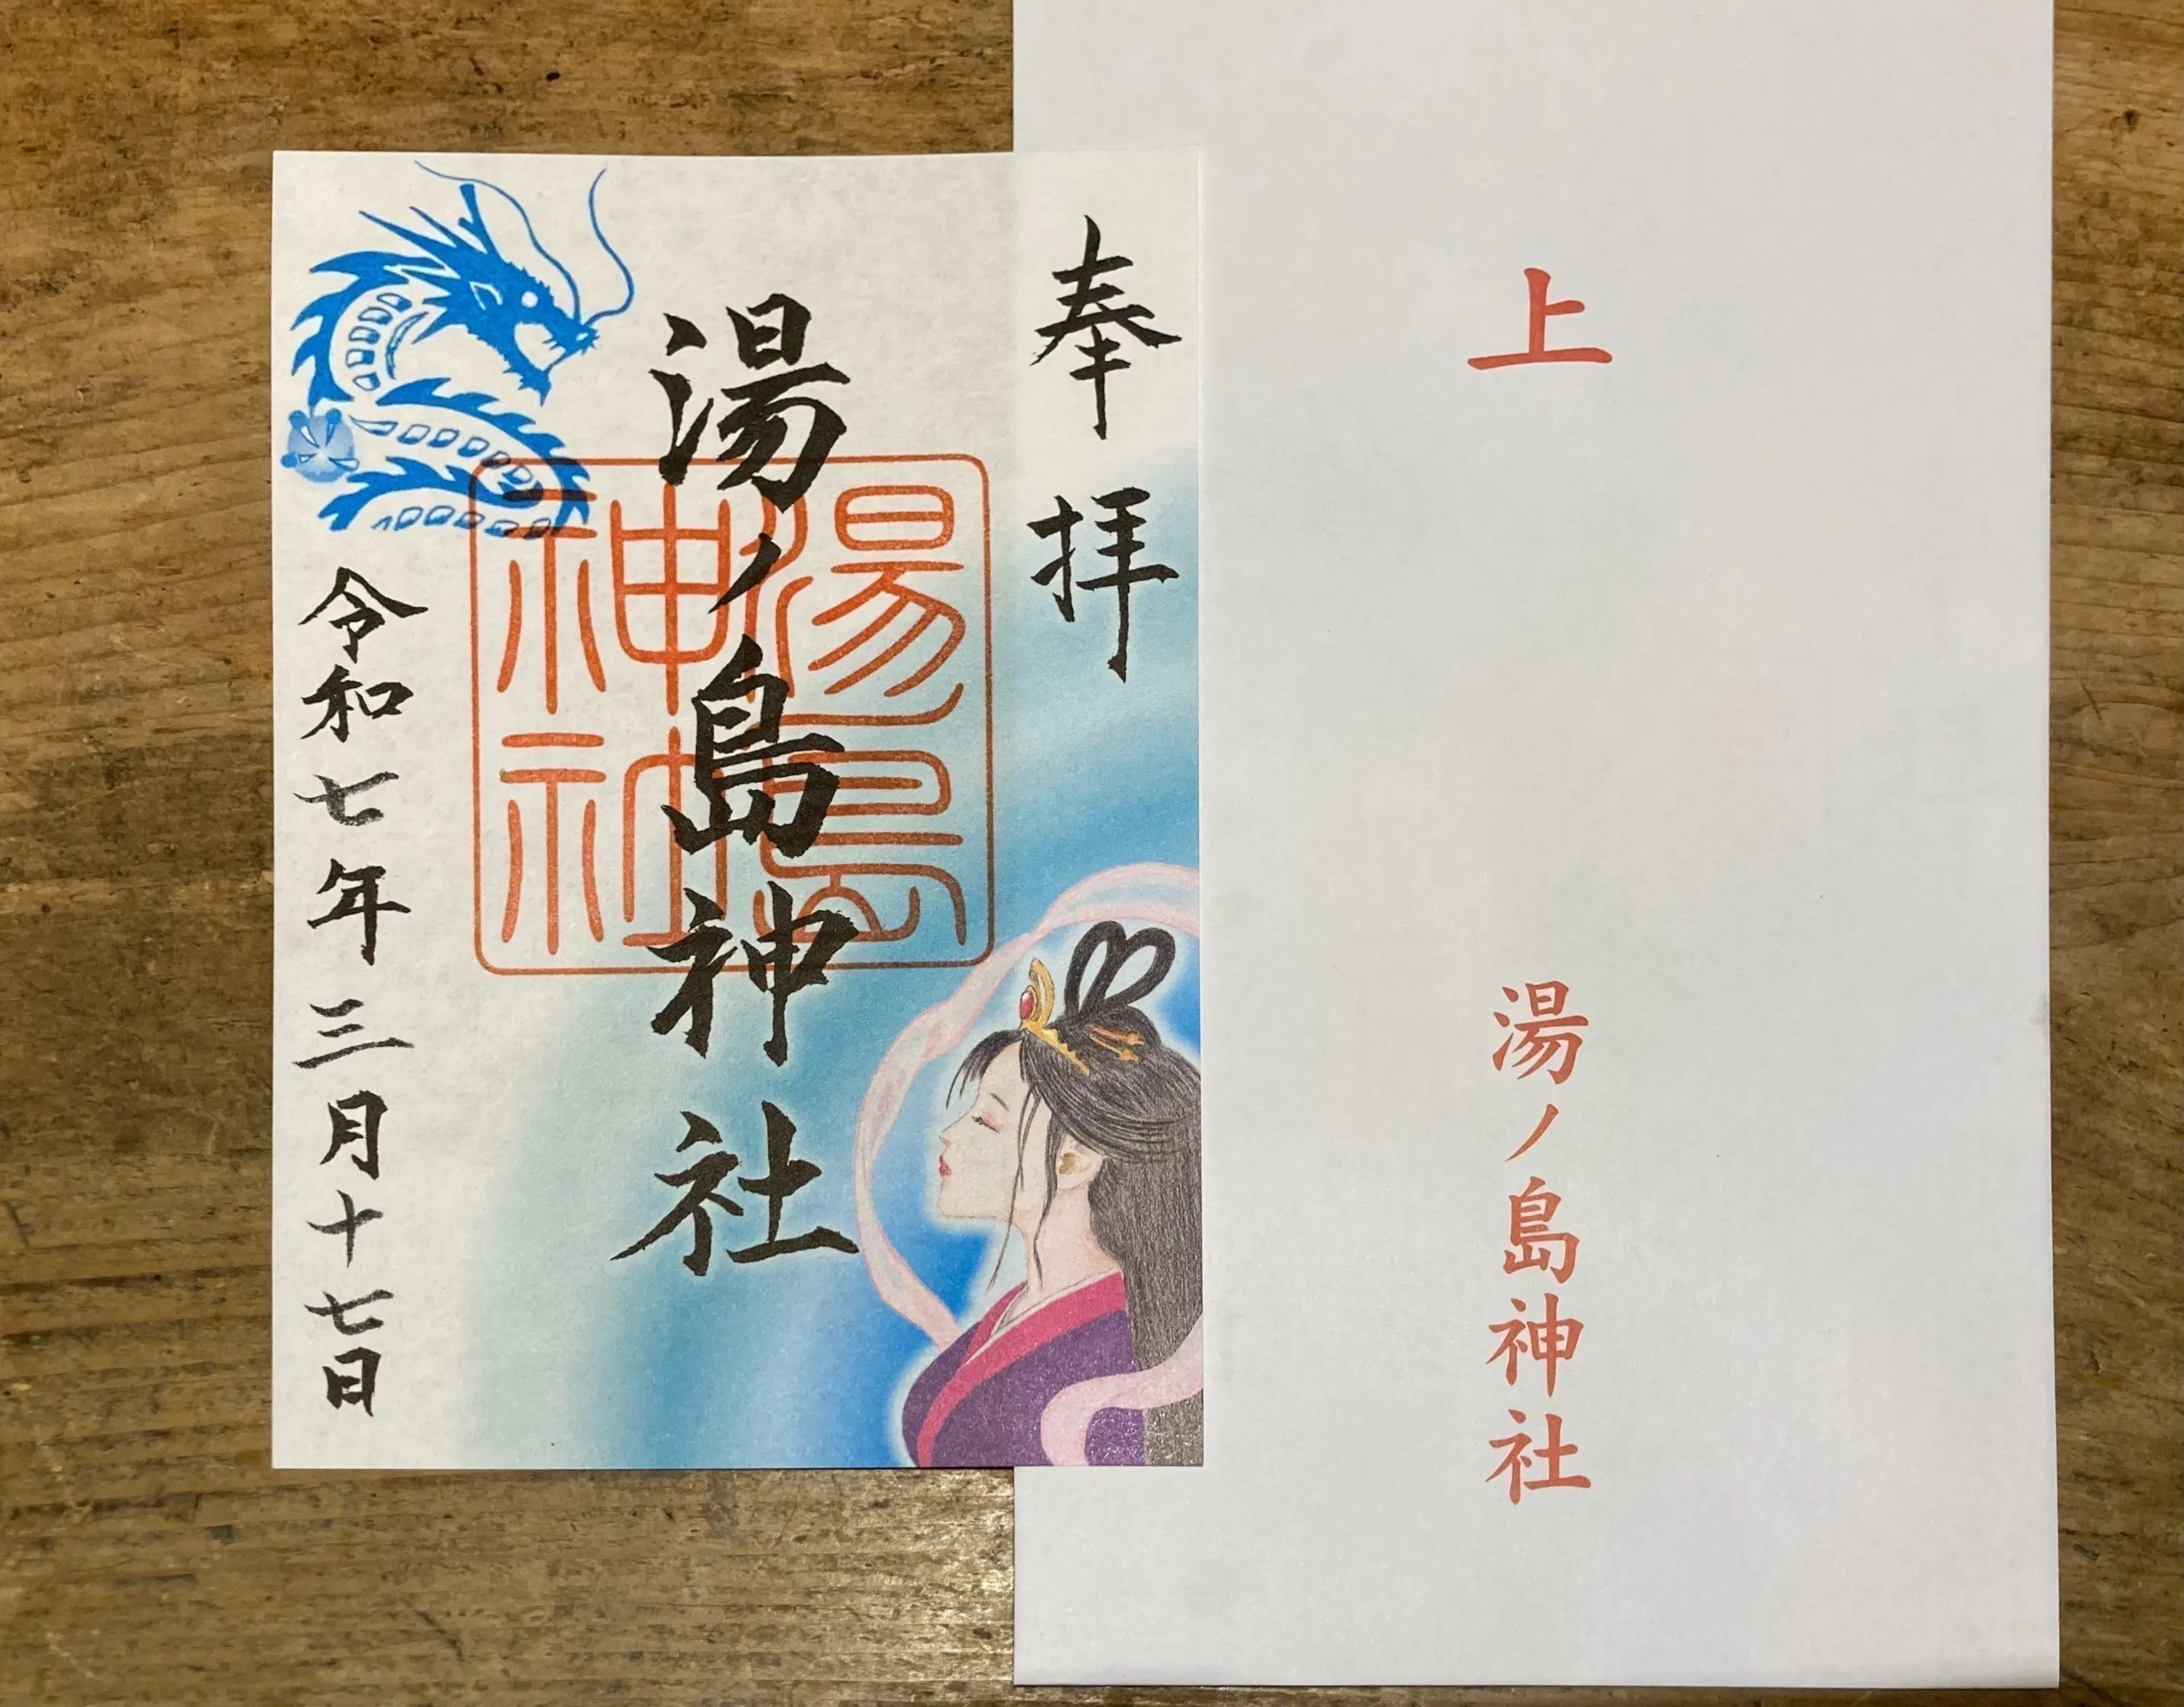 上
湯ノ島神社
奉拝
湯ノ島神社
湯島
神社
令和七年三月十七日